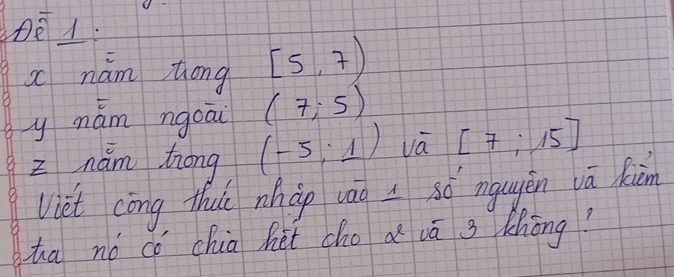 Đề 1:
x nằm trong [5, 7)
y nằm ngoài (7; 5)
z nằm trong (-5; 1) và [7; 15]
Viết công thức nhập vào 1 số nguyên và kiểm
tra nó có chia hết cho 2 và 3 không?